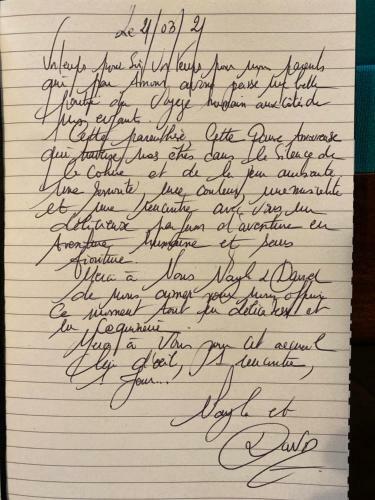 Le 21/03/21
Un temps pour soi, Un Temps pour mon parents
qui par Amour, avons passé une belle
du Voyage humain aux côtés de
mon enfant.
Cette parenthèse, Cette Pause Amoureuse
qui traverse nos êtres dans le silence de
la Colline et de le jeu
une sonorité, une couleur, une musicalité
et une rencontre avec Vous un
délicieux parfum d'aventure en
Aventure humaine et sans
fioriture.
Merci à Vous Nayla &
de nous pour nous offrir
Ce moment tout en délicatesse et
la Coquinerie.
Merci à Vous pour cet accueil
Clin d'oeil, 1 rencontre,
1 Jour...,
Nayla et
David